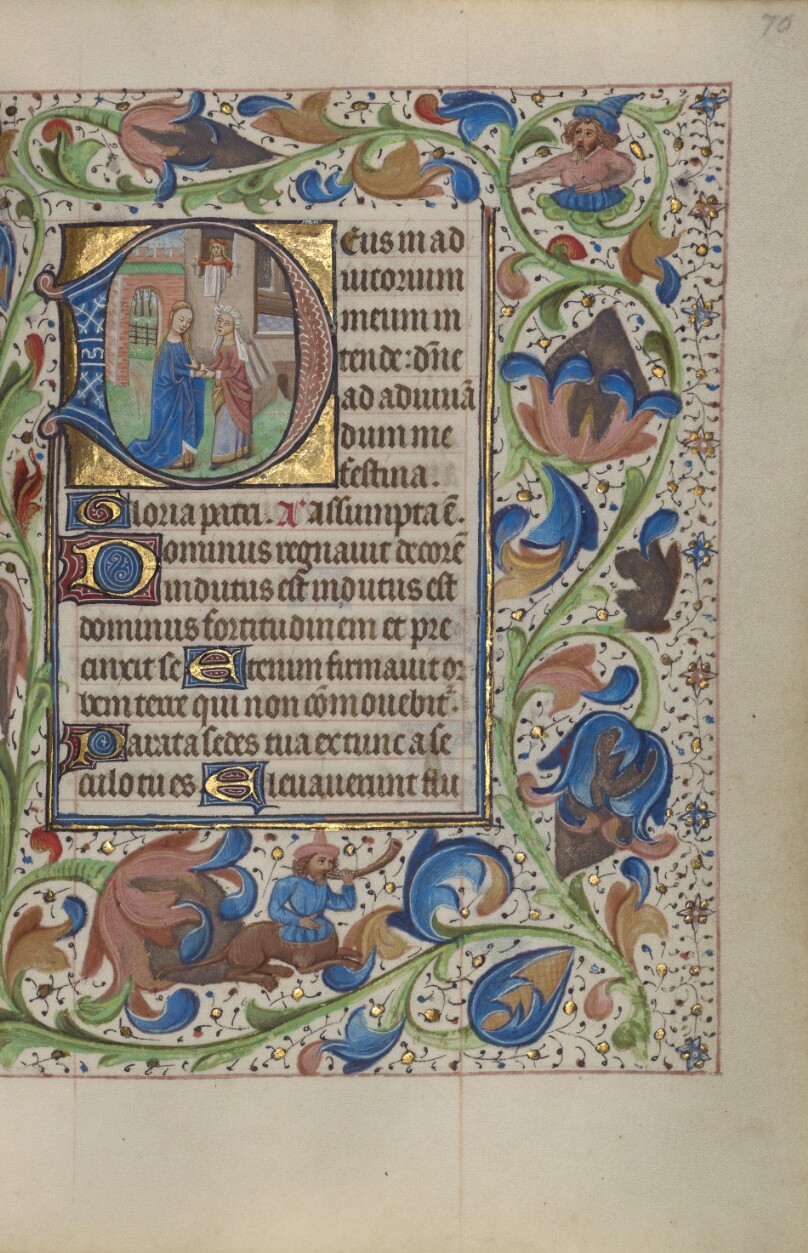 70
Deus in ad
iutorium
meum in
tende: dn̄e
ad adiuuā
dum me
festina.
Gloria patri. An̄ assumpta ē.
Dominus regnauit decorē
indutus est indutus est
dominus fortitudinem et pre
cinxit se Etenim firmauit or
bem terre qui non cōmouebit᷑.
Parata sedes tua ex tunc a se
culo tu es Eleuauerunt flu